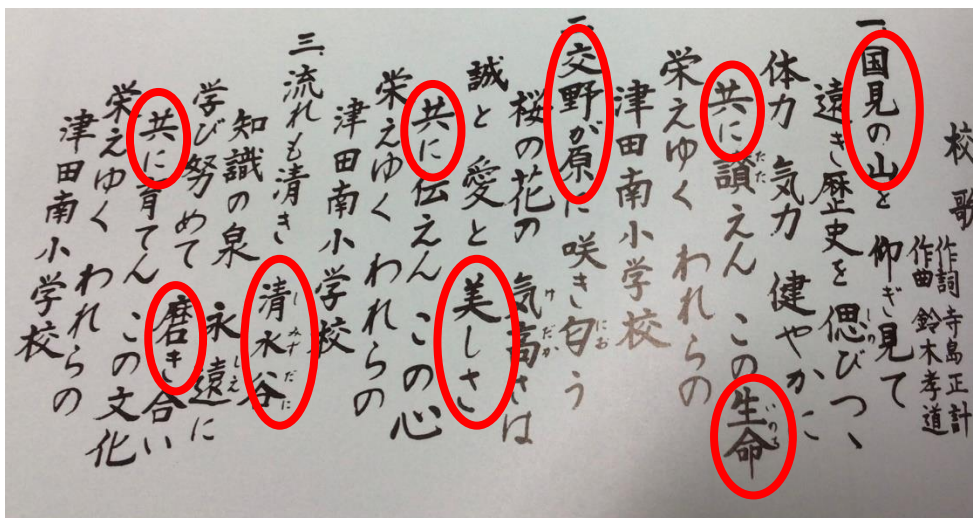 校歌
作詞 寺島正計
作曲 鈴木孝道
一、国見の山を 仰ぎ見て
遠き歴史を 偲びつゝ
体力 気力 健やかに
共に讃えん この生命
栄えゆく われらの
津田南小学校
二、交野が原に 咲き匂う
桜の花の 気高さは
誠と 愛と 美しさ
共に伝えん この心
栄えゆく われらの
津田南小学校
三、流れも清き 清水谷
知識の泉 永遠に
学び努めて 磨き合い
共に育てん この文化
栄えゆく われらの
津田南小学校